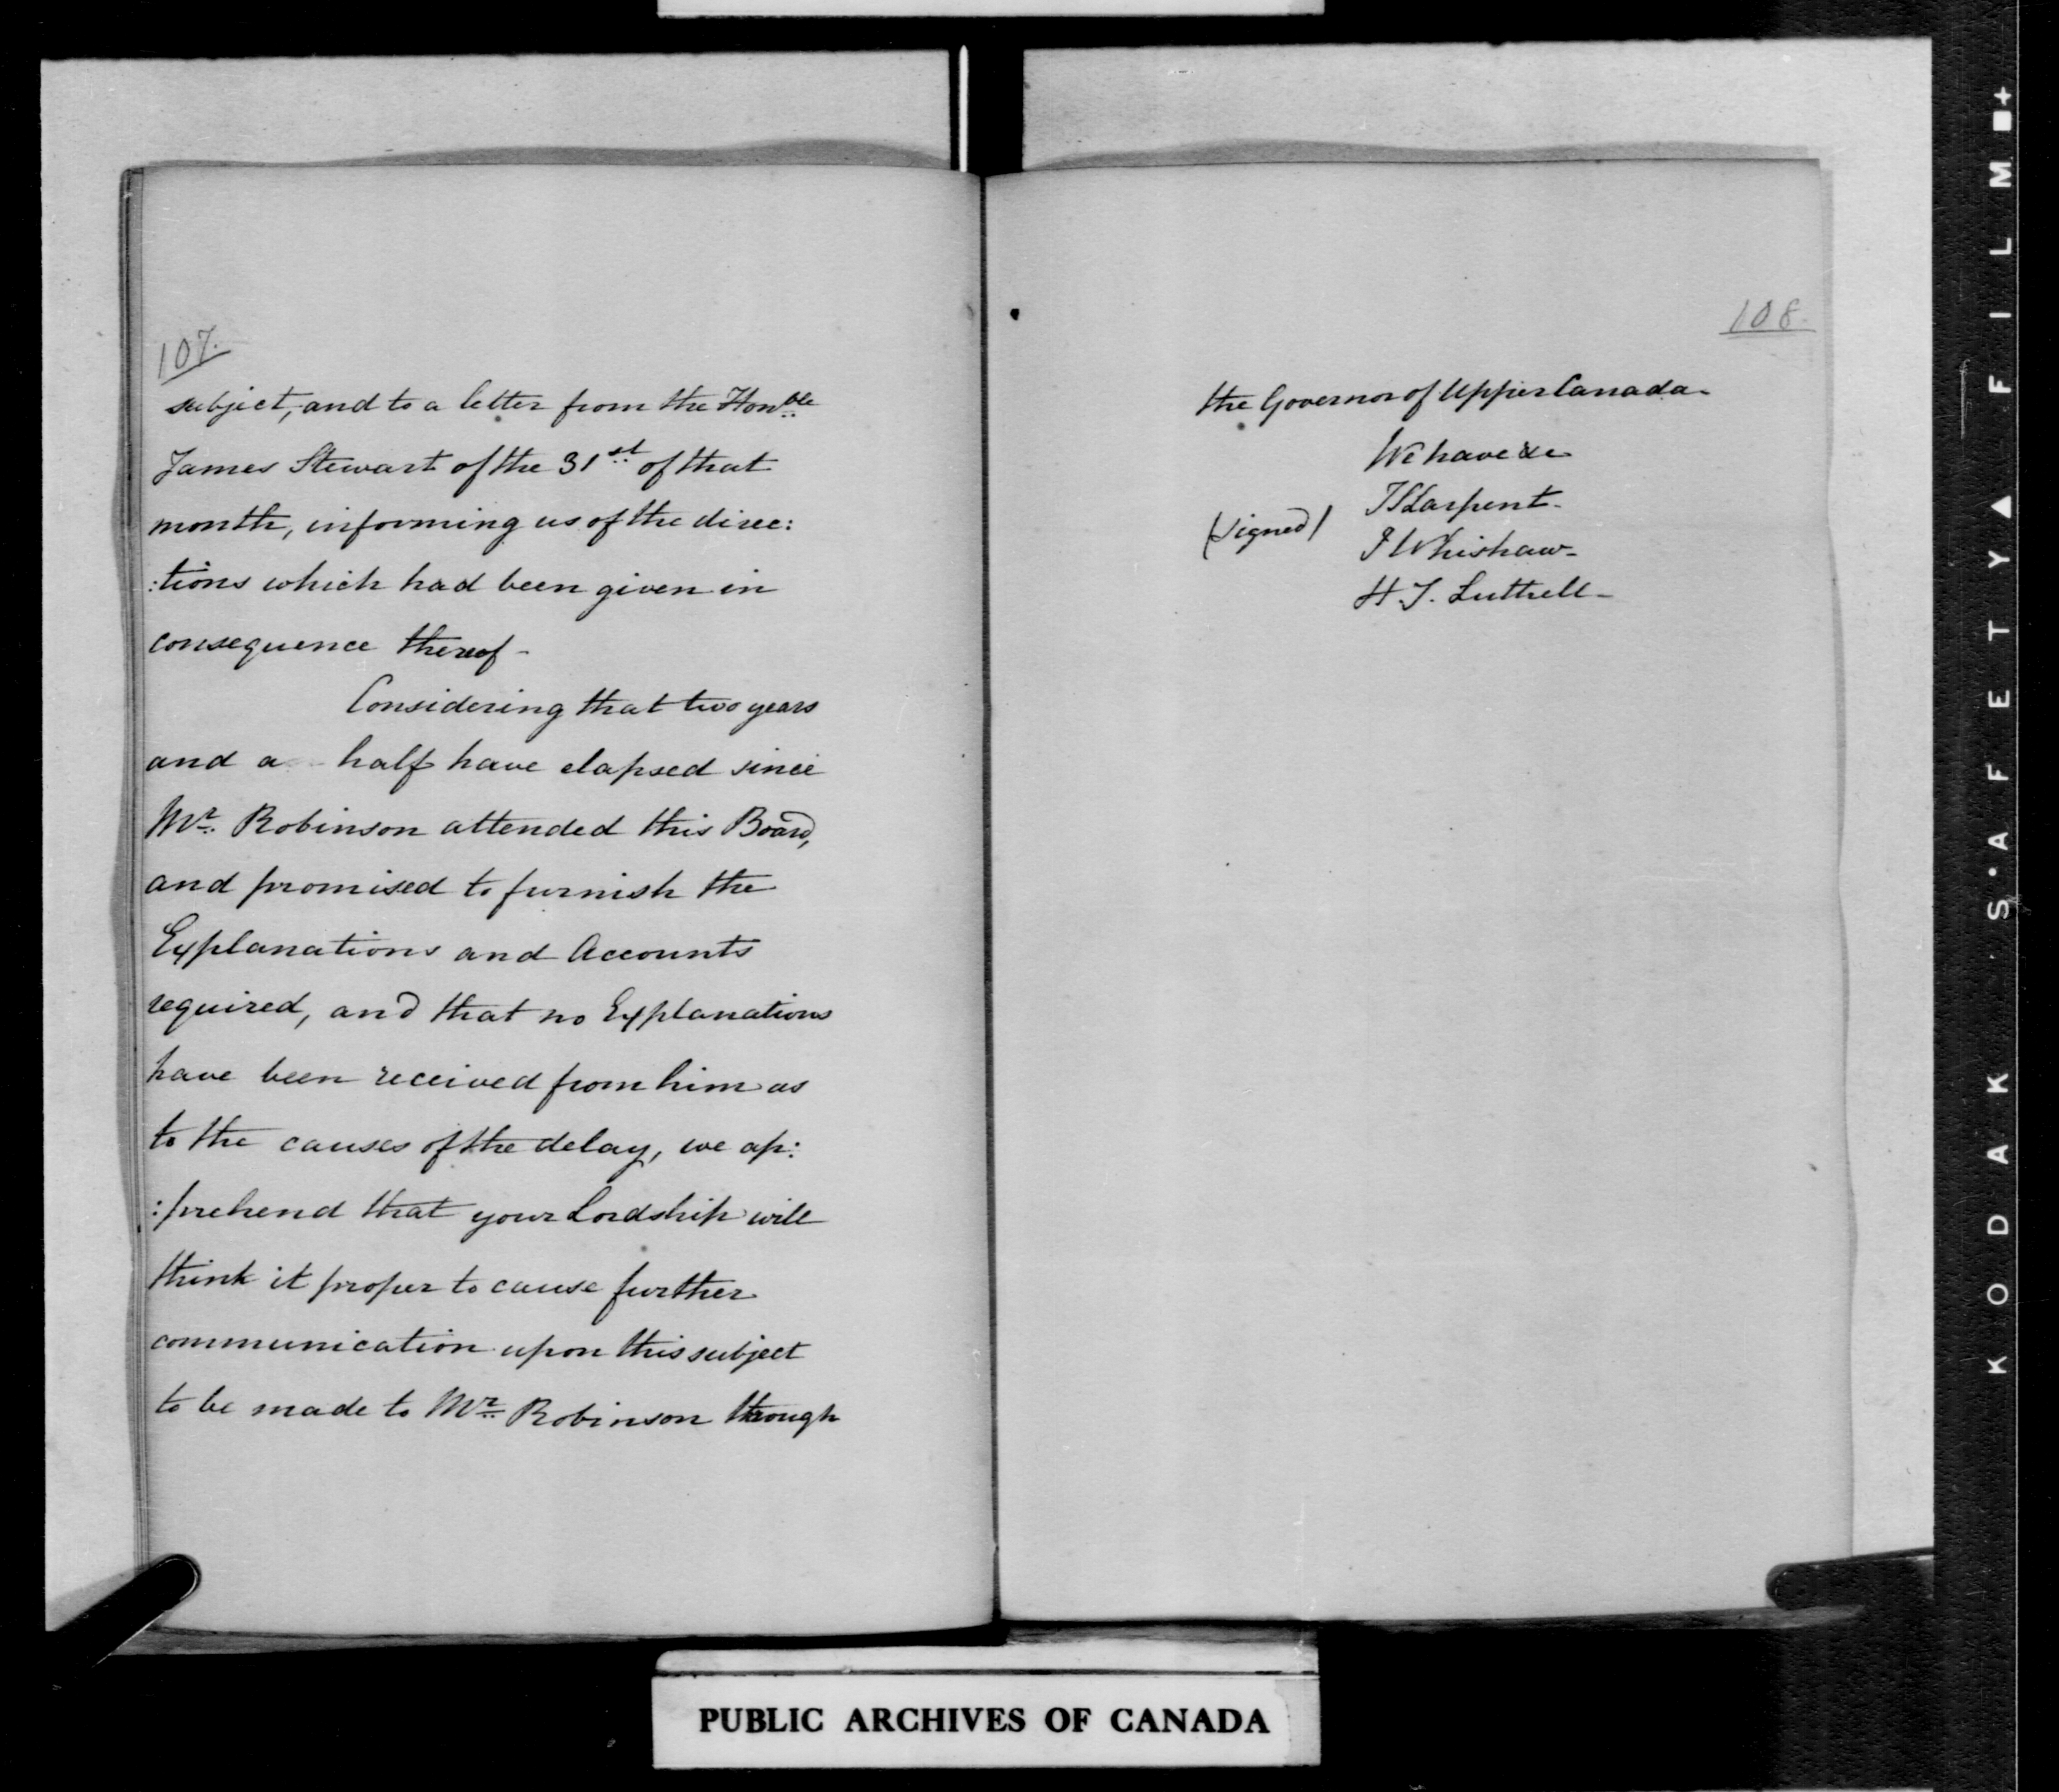 107.
subject, and to a letter from the Honble
James Stewart of the 31st of that
month, informing us of the direc:
:tions which had been given in
consequence thereof -
Considering that two years
and a half have elapsed since
Mr. Robinson attended this Board,
and promised to furnish the
Explanations and Accounts
required, and that no Explanations
have been received from him as
to the causes of the delay, we ap:
:prehend that your Lordship will
think it proper to cause further
communication upon this subject
to be made to Mr. Robinson through
108.
the Governor of Upper Canada -
We have &c
(signed)
J S Larpent -
J Whishaw -
H. F. Luttrell -
PUBLIC ARCHIVES OF CANADA
KODAK S·AFETY▲ FILM ■+